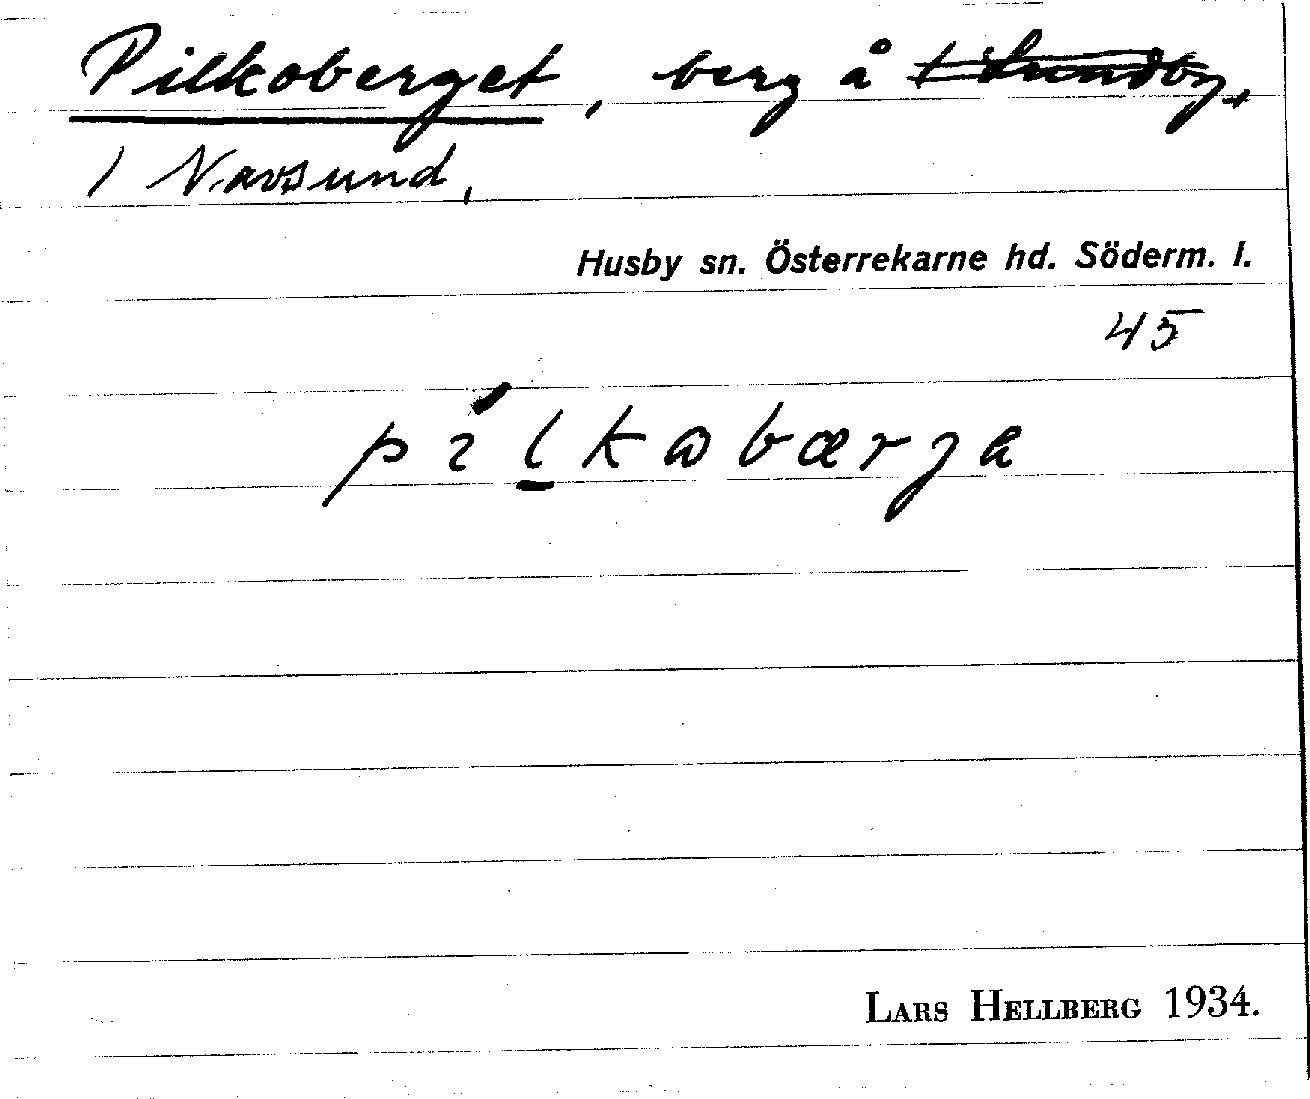 Pilkoberget, berg å 1 Lundby,
1 Navsund,
Husby sn. Österrekarne hd. Söderm. l.
45
pílkωbærja
LARS HELLBERG 1934.